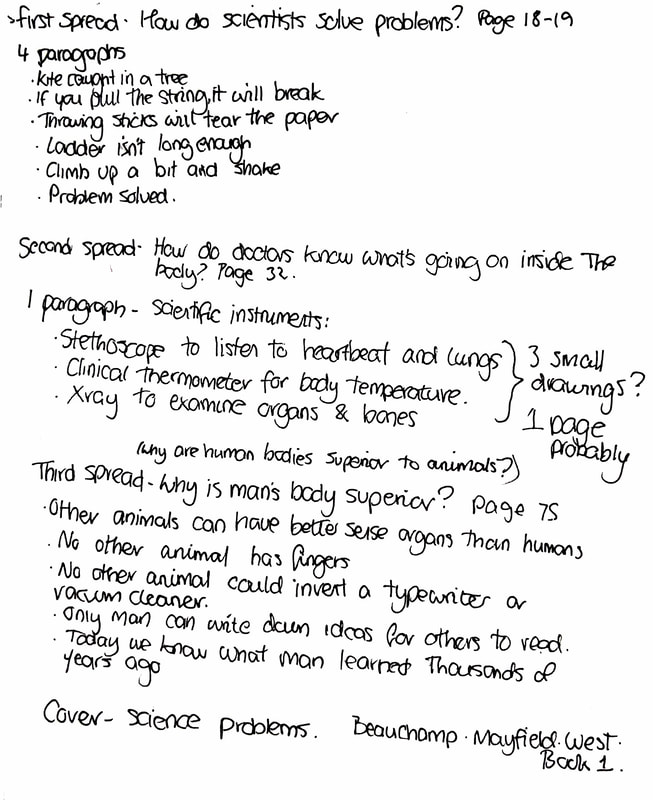 >first spread - How do scientists solve problems? Page 18-19
4 paragraphs
· Kite caught in a tree
· If you pull the string, it will break
· Throwing sticks will tear the paper
· Ladder isn't long enough
· Climb up a bit and shake
· Problem solved.
Second spread - How do doctors know what's going on inside The
body? Page 32.
1 paragraph - scientific instruments:
· Stethoscope to listen to heartbeat and lungs
· Clinical thermometer for body temperature.
· Xray to examine organs & bones
3 small
drawings?
1 page
probably
(why are human bodies superior to animals?)
Third spread - Why is man's body superior? Page 75
· Other animals can have better sense organs than humans
· No other animal has fingers
· No other animal could invent a typewriter or
vacuum cleaner.
· Only man can write down ideas for others to read.
· Today we know what man learned Thousands of
years ago
Cover - science problems. Beauchamp · Mayfield · West ·
Book 1.